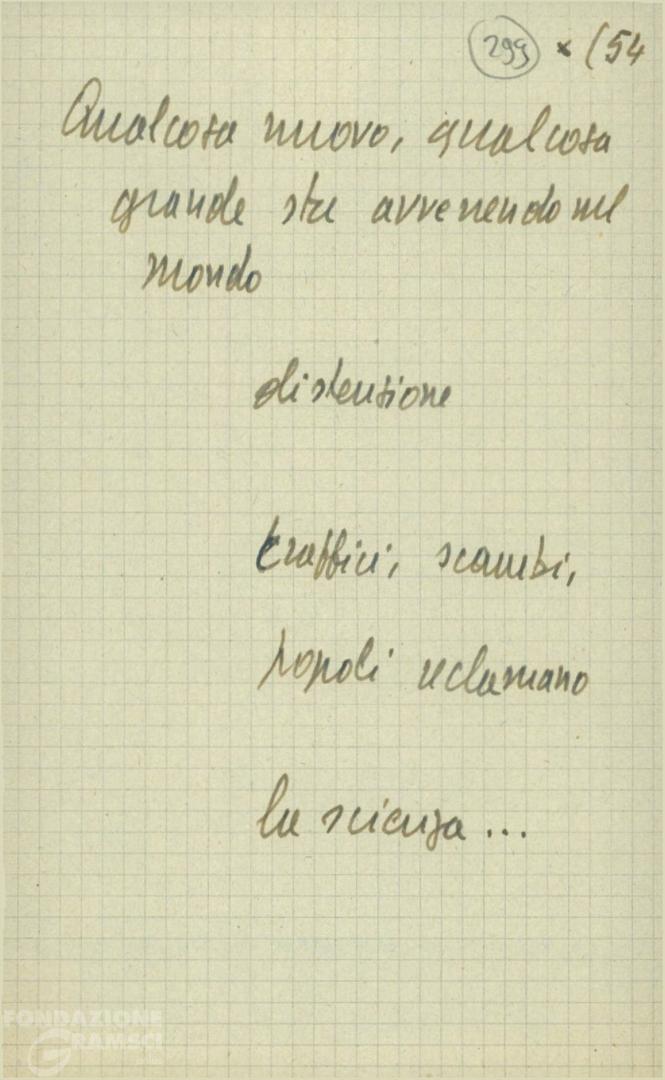 299 x (54
Qualcosa nuovo, qualcosa
grande sta avvenendo nel
mondo
distensione
traffici, scambi,
popoli reclamano
la scienza...
FONDAZIONE
GRAMSCI